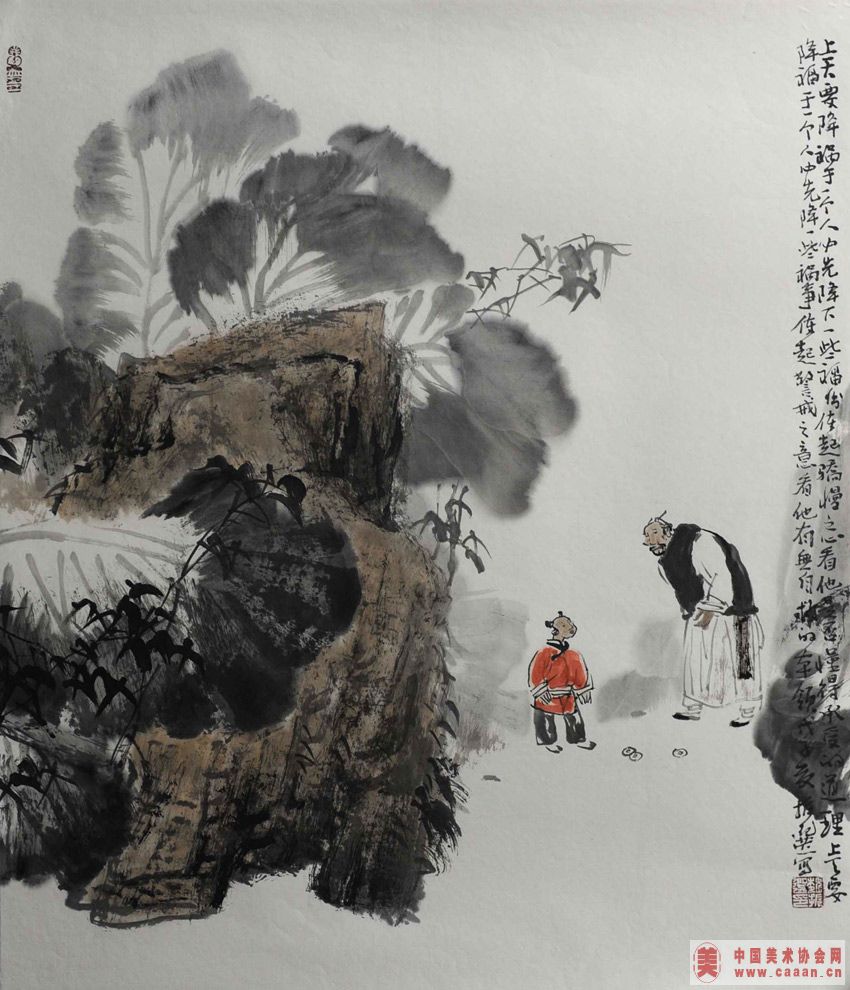 上天要降祸于一个人必先降下一些福分使起骄慢之心看他是否懂得承受的道理上天要
降福于一个人必先降一些祸事使起警戒之意看他有无自救的本领戊子夏
中国美术协会网
www.caaan.cn